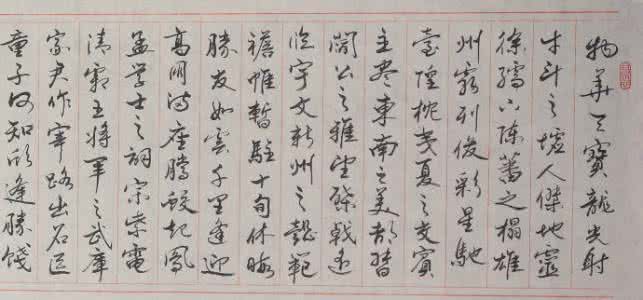 物華天寶龍光射
牛斗之墟人傑地靈
徐孺下陳蕃之榻雄
州霧列俊彩星馳
臺隍枕夷夏之交賓
主盡東南之美都督
閻公之雅望棨戟遙
臨宇文新州之懿範
襜帷暫駐十旬休暇
勝友如雲千里逢迎
高朋滿座騰蛟起鳳
孟学士之詞宗紫電
清霜王將軍之武庫
家君作宰路出名區
童子何知躬逢勝餞